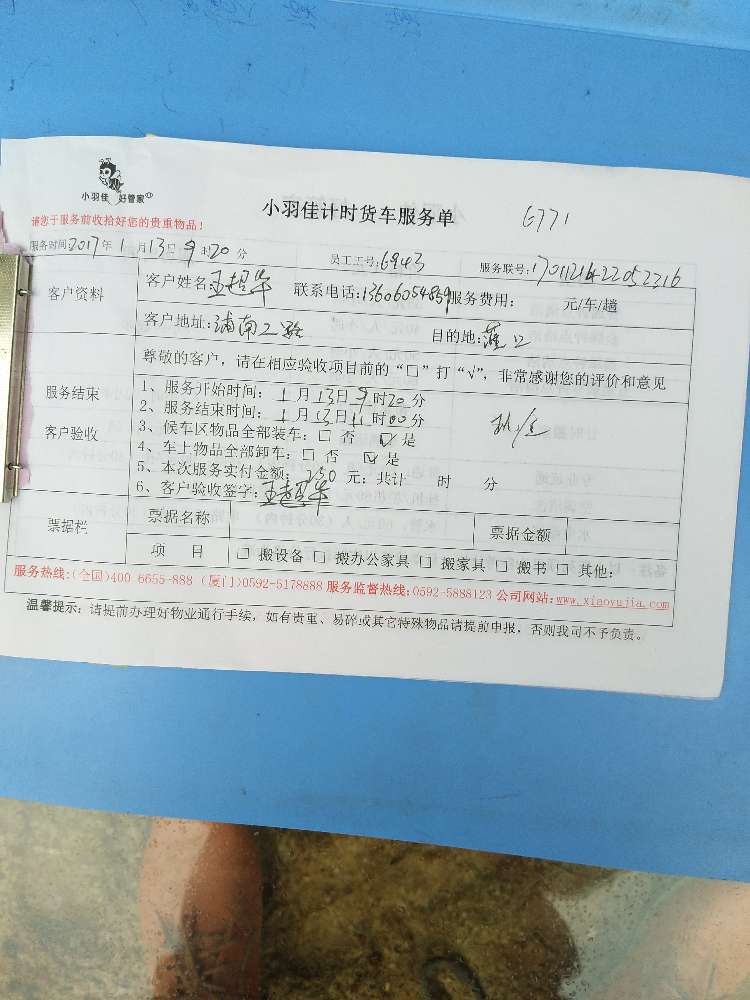 小羽佳 好管家
小羽佳计时货车服务单 6771
请您于服务前收拾好您的贵重物品！
服务时间2017年1月13日9时20分 员工工号:6943 服务联号:
客户资料 客户姓名: 联系电话:13606054859服务费用: 元/车/趟
客户地址:浦南二路 目的地:灌口
尊敬的客户，请在相应验收项目前的“□”打“√”，非常感谢您的评价和意见
服务结束
客户验收
1、服务开始时间：1月13日9时20分
2、服务结束时间：1月13日11时00分
3、候车区物品全部装车：□ 否 ☑ 是
4、车上物品全部卸车：□ 否 ☑ 是
5、本次服务实付金额：250元：共计 时 分
6、客户验收签字:
票据栏 票据名称 票据金额
项 目 □ 搬设备 □ 搬办公家具 □ 搬家具 □ 搬书 □ 其他:
服务热线:(全国)400-6655-888 (厦门)0592-5178888 服务监督热线:0592-5888123 公司网站:www.xiaoyujia.com
温馨提示：请提前办理好物业通行手续，如有贵重、易碎或其它特殊物品请提前申报，否则我司不予负责。